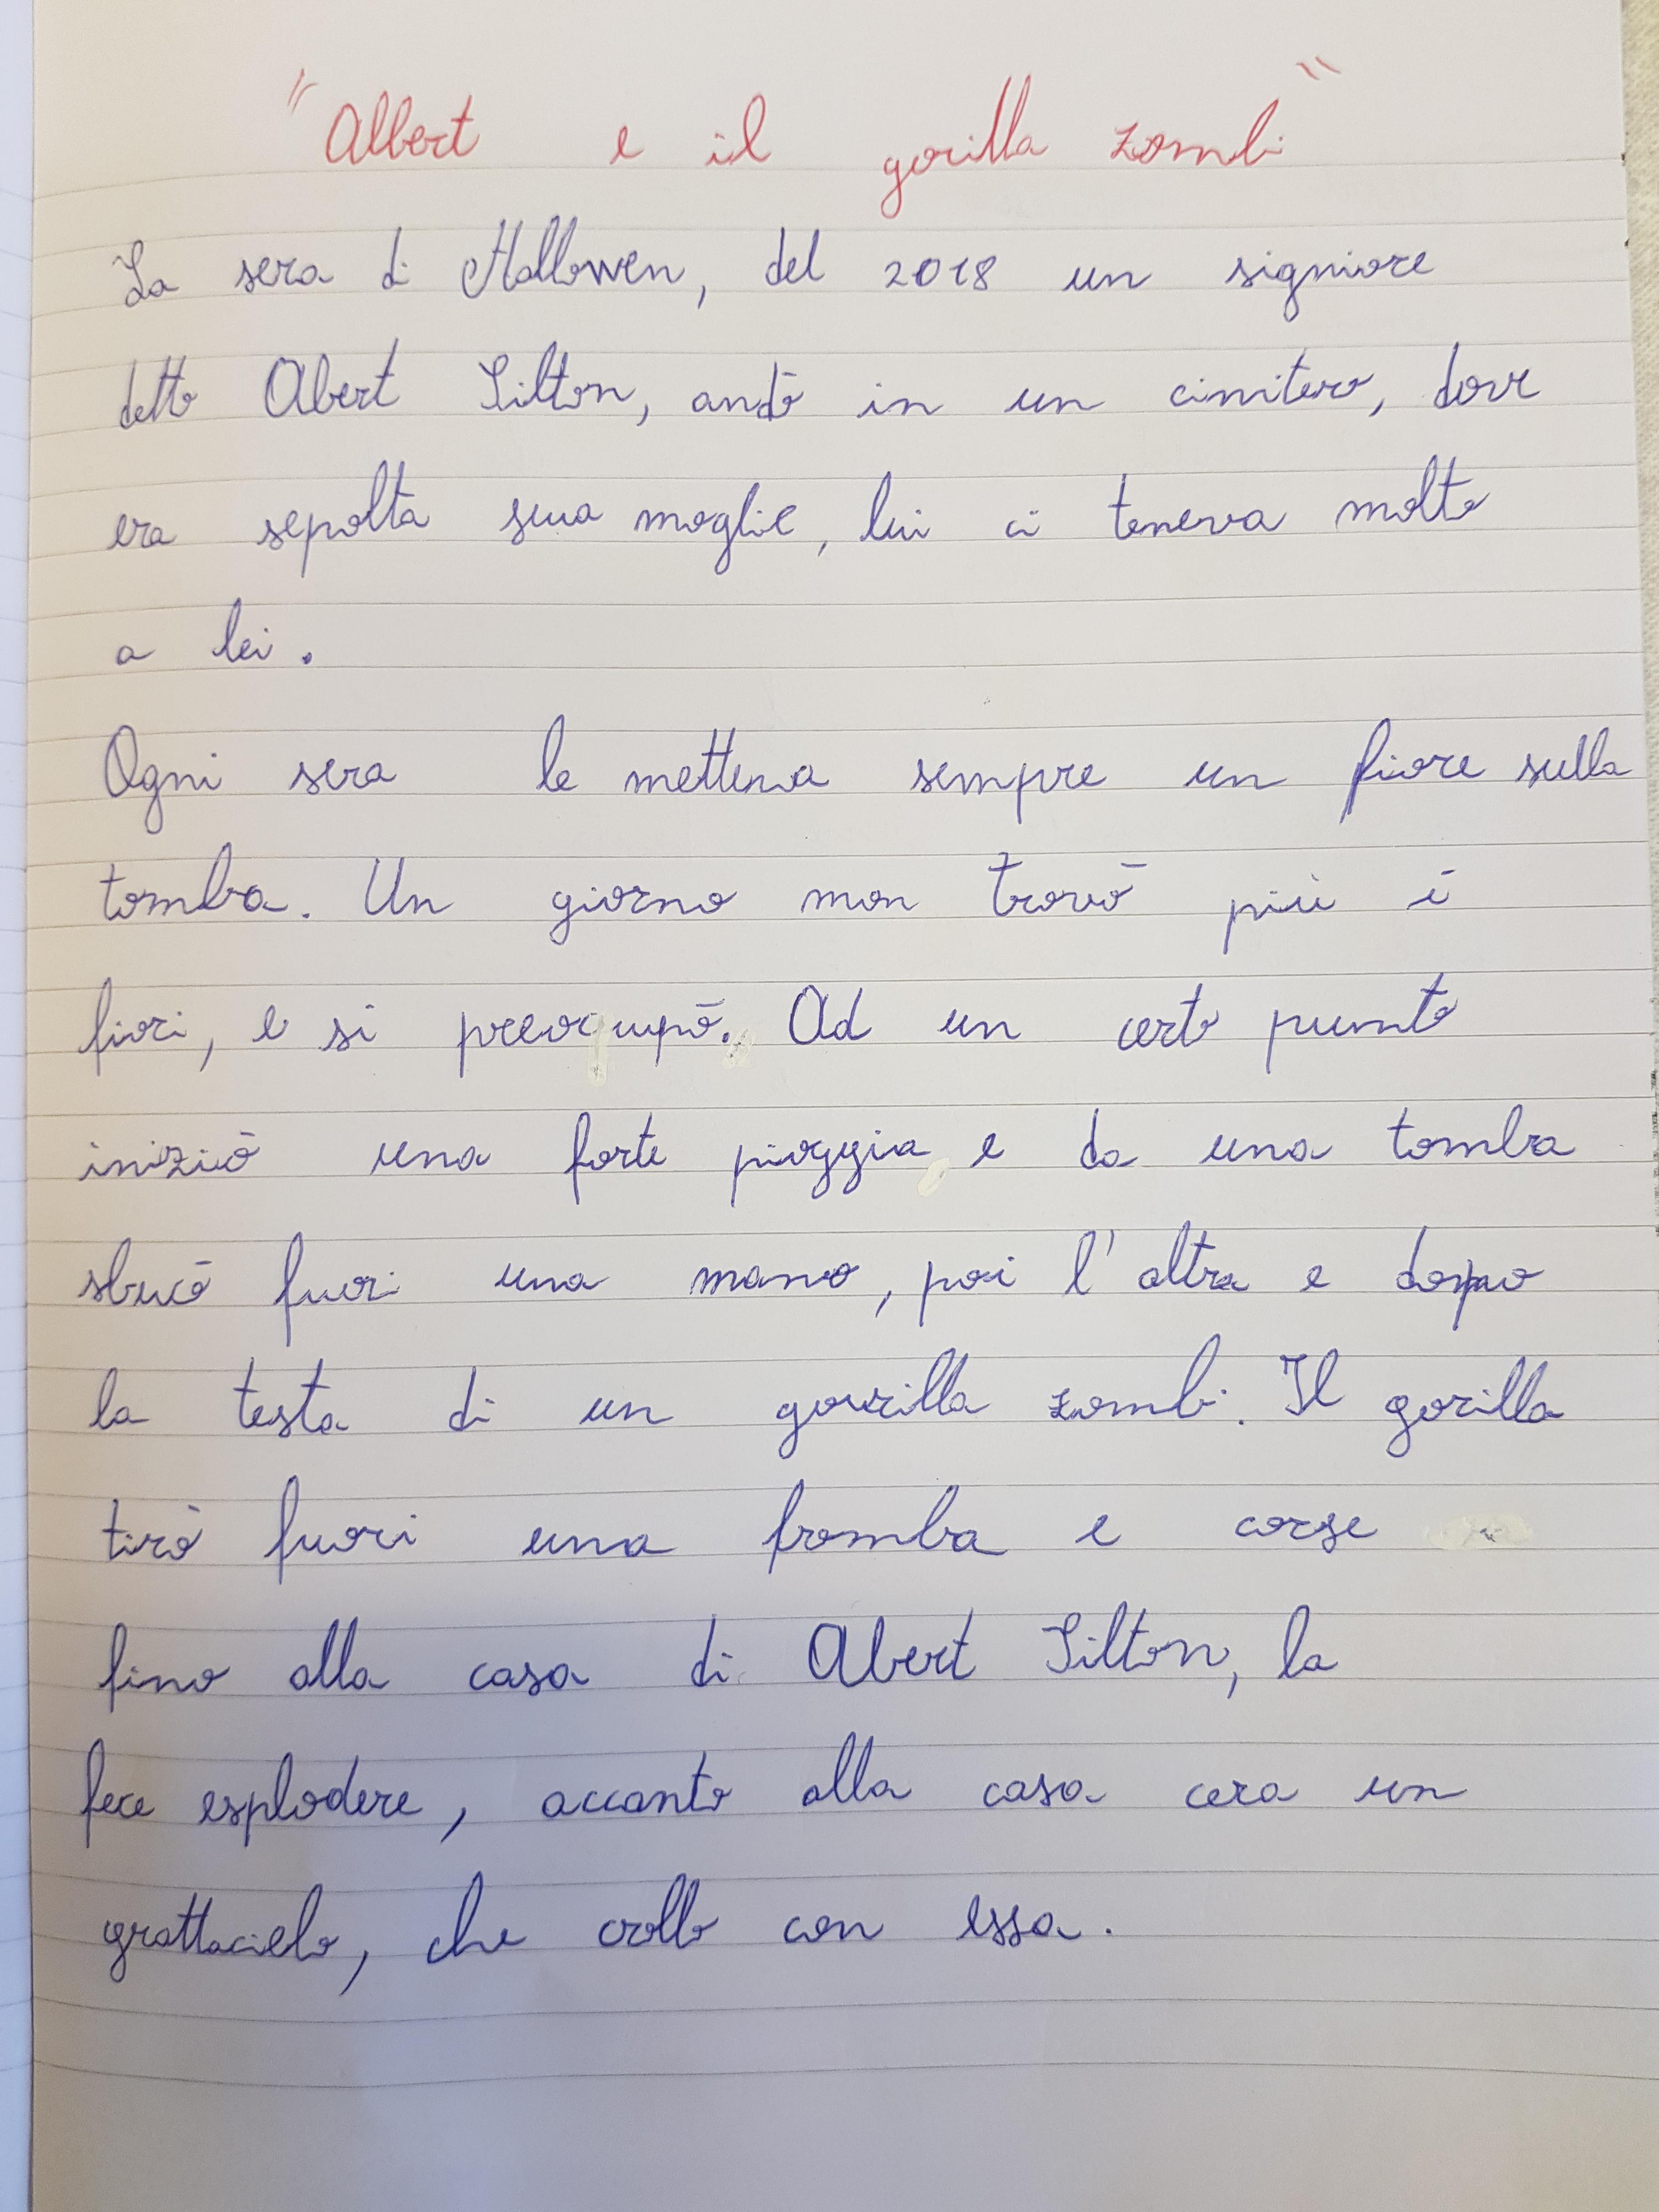 "Albert e il gorilla zombi"
La sera di Hallowen, del 2018 un signiore
detto Abert Silton, andò in un cimitero, dove
era sepolta sua moglie, lui ci teneva molto
a lei.
Ogni sera le metteva sempre un fiore sulla
tomba. Un giorno non trovò più i
fiori, e si preoqupò. Ad un certo punto
iniziò una forte pioggia e da una tomba
sbucò fuori una mano, poi l'altra e dopo
la testa di un gorilla zombi. Il gorilla
tirò fuori una bomba e corse
fino alla casa di Abert Silton, la
fece esplodere, accanto alla casa cera un
grattacielo, che crollo con essa.